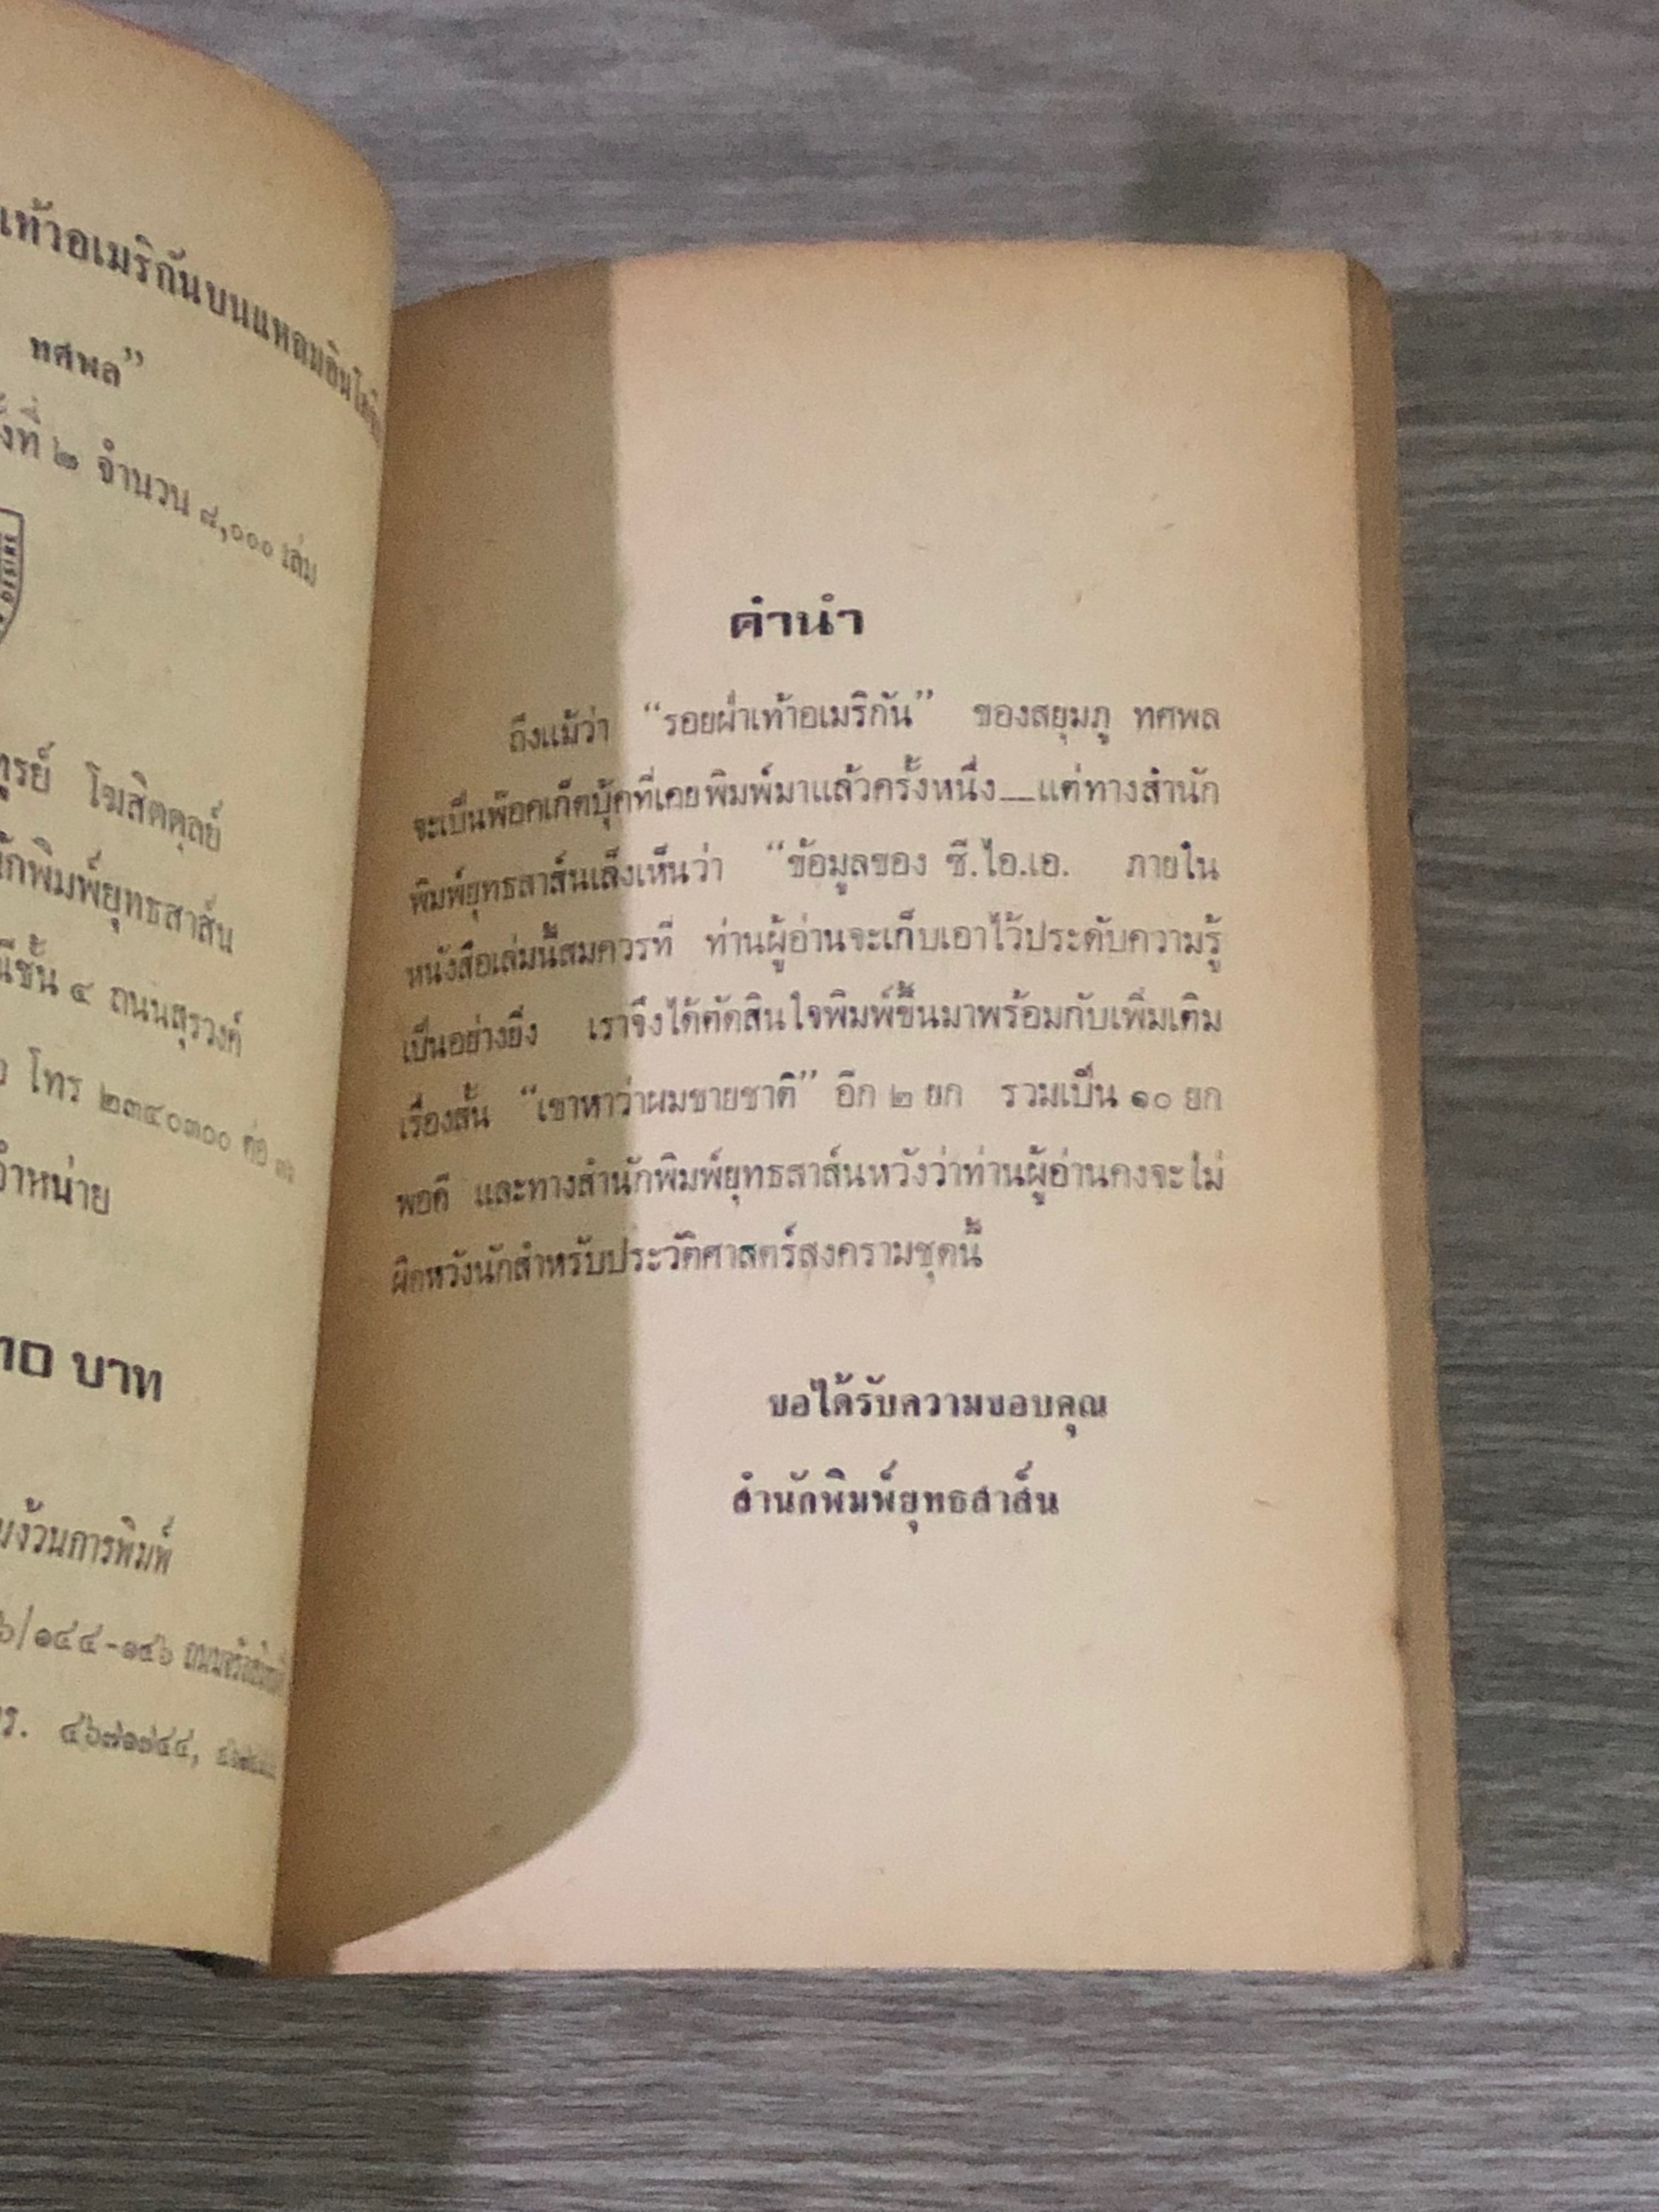 เท้าอเมริกันบนแหลมอินโดจีน
ทศพล”
ที่ ๒ จำนวน ๘,๐๐๐ เล่ม
โฆสิตดุลย์
พิมพ์ยุทธสาส์น
ชั้น ๔ ถนนสุรวงศ์
โทร ๒๓๔๐๓๐๐ ต่อ
จำหน่าย
๑๐ บาท
การพิมพ์
๖/๑๔๔-๑๔๖
๔๖๗๑๗๔๔,
คำนำ
ถึงแม้ว่า “รอยฝ่าเท้าอเมริกัน” ของสยุมภู ทศพล
จะเป็นพ๊อคเก็ตบุ้คที่เคยพิมพ์มาแล้วครั้งหนึ่ง—แต่ทางสำนัก
พิมพ์ยุทธสาส์นเล็งเห็นว่า “ข้อมูลของ ซี.ไอ.เอ. ภายใน
หนังสือเล่มนี้สมควรที่ ท่านผู้อ่านจะเก็บเอาไว้ประดับความรู้
เป็นอย่างยิ่ง เราจึงได้ตัดสินใจพิมพ์ขึ้นมาพร้อมกับเพิ่มเติม
เรื่องสั้น “เขาหาว่าผมขายชาติ” อีก ๒ ยก รวมเป็น ๑๐ ยก
พอดี และทางสำนักพิมพ์ยุทธสาส์นหวังว่าท่านผู้อ่านคงจะไม่
ผิดหวังนักสำหรับประวัติศาสตร์สงครามชุดนี้
ขอได้รับความขอบคุณ
สำนักพิมพ์ยุทธสาส์น